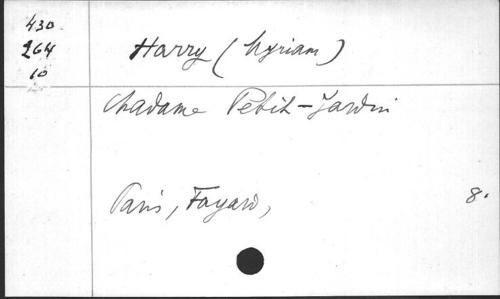 430.
264
10
Harry (Myriam)
Madame Petit-Jardin
Paris, Fayard,
8.